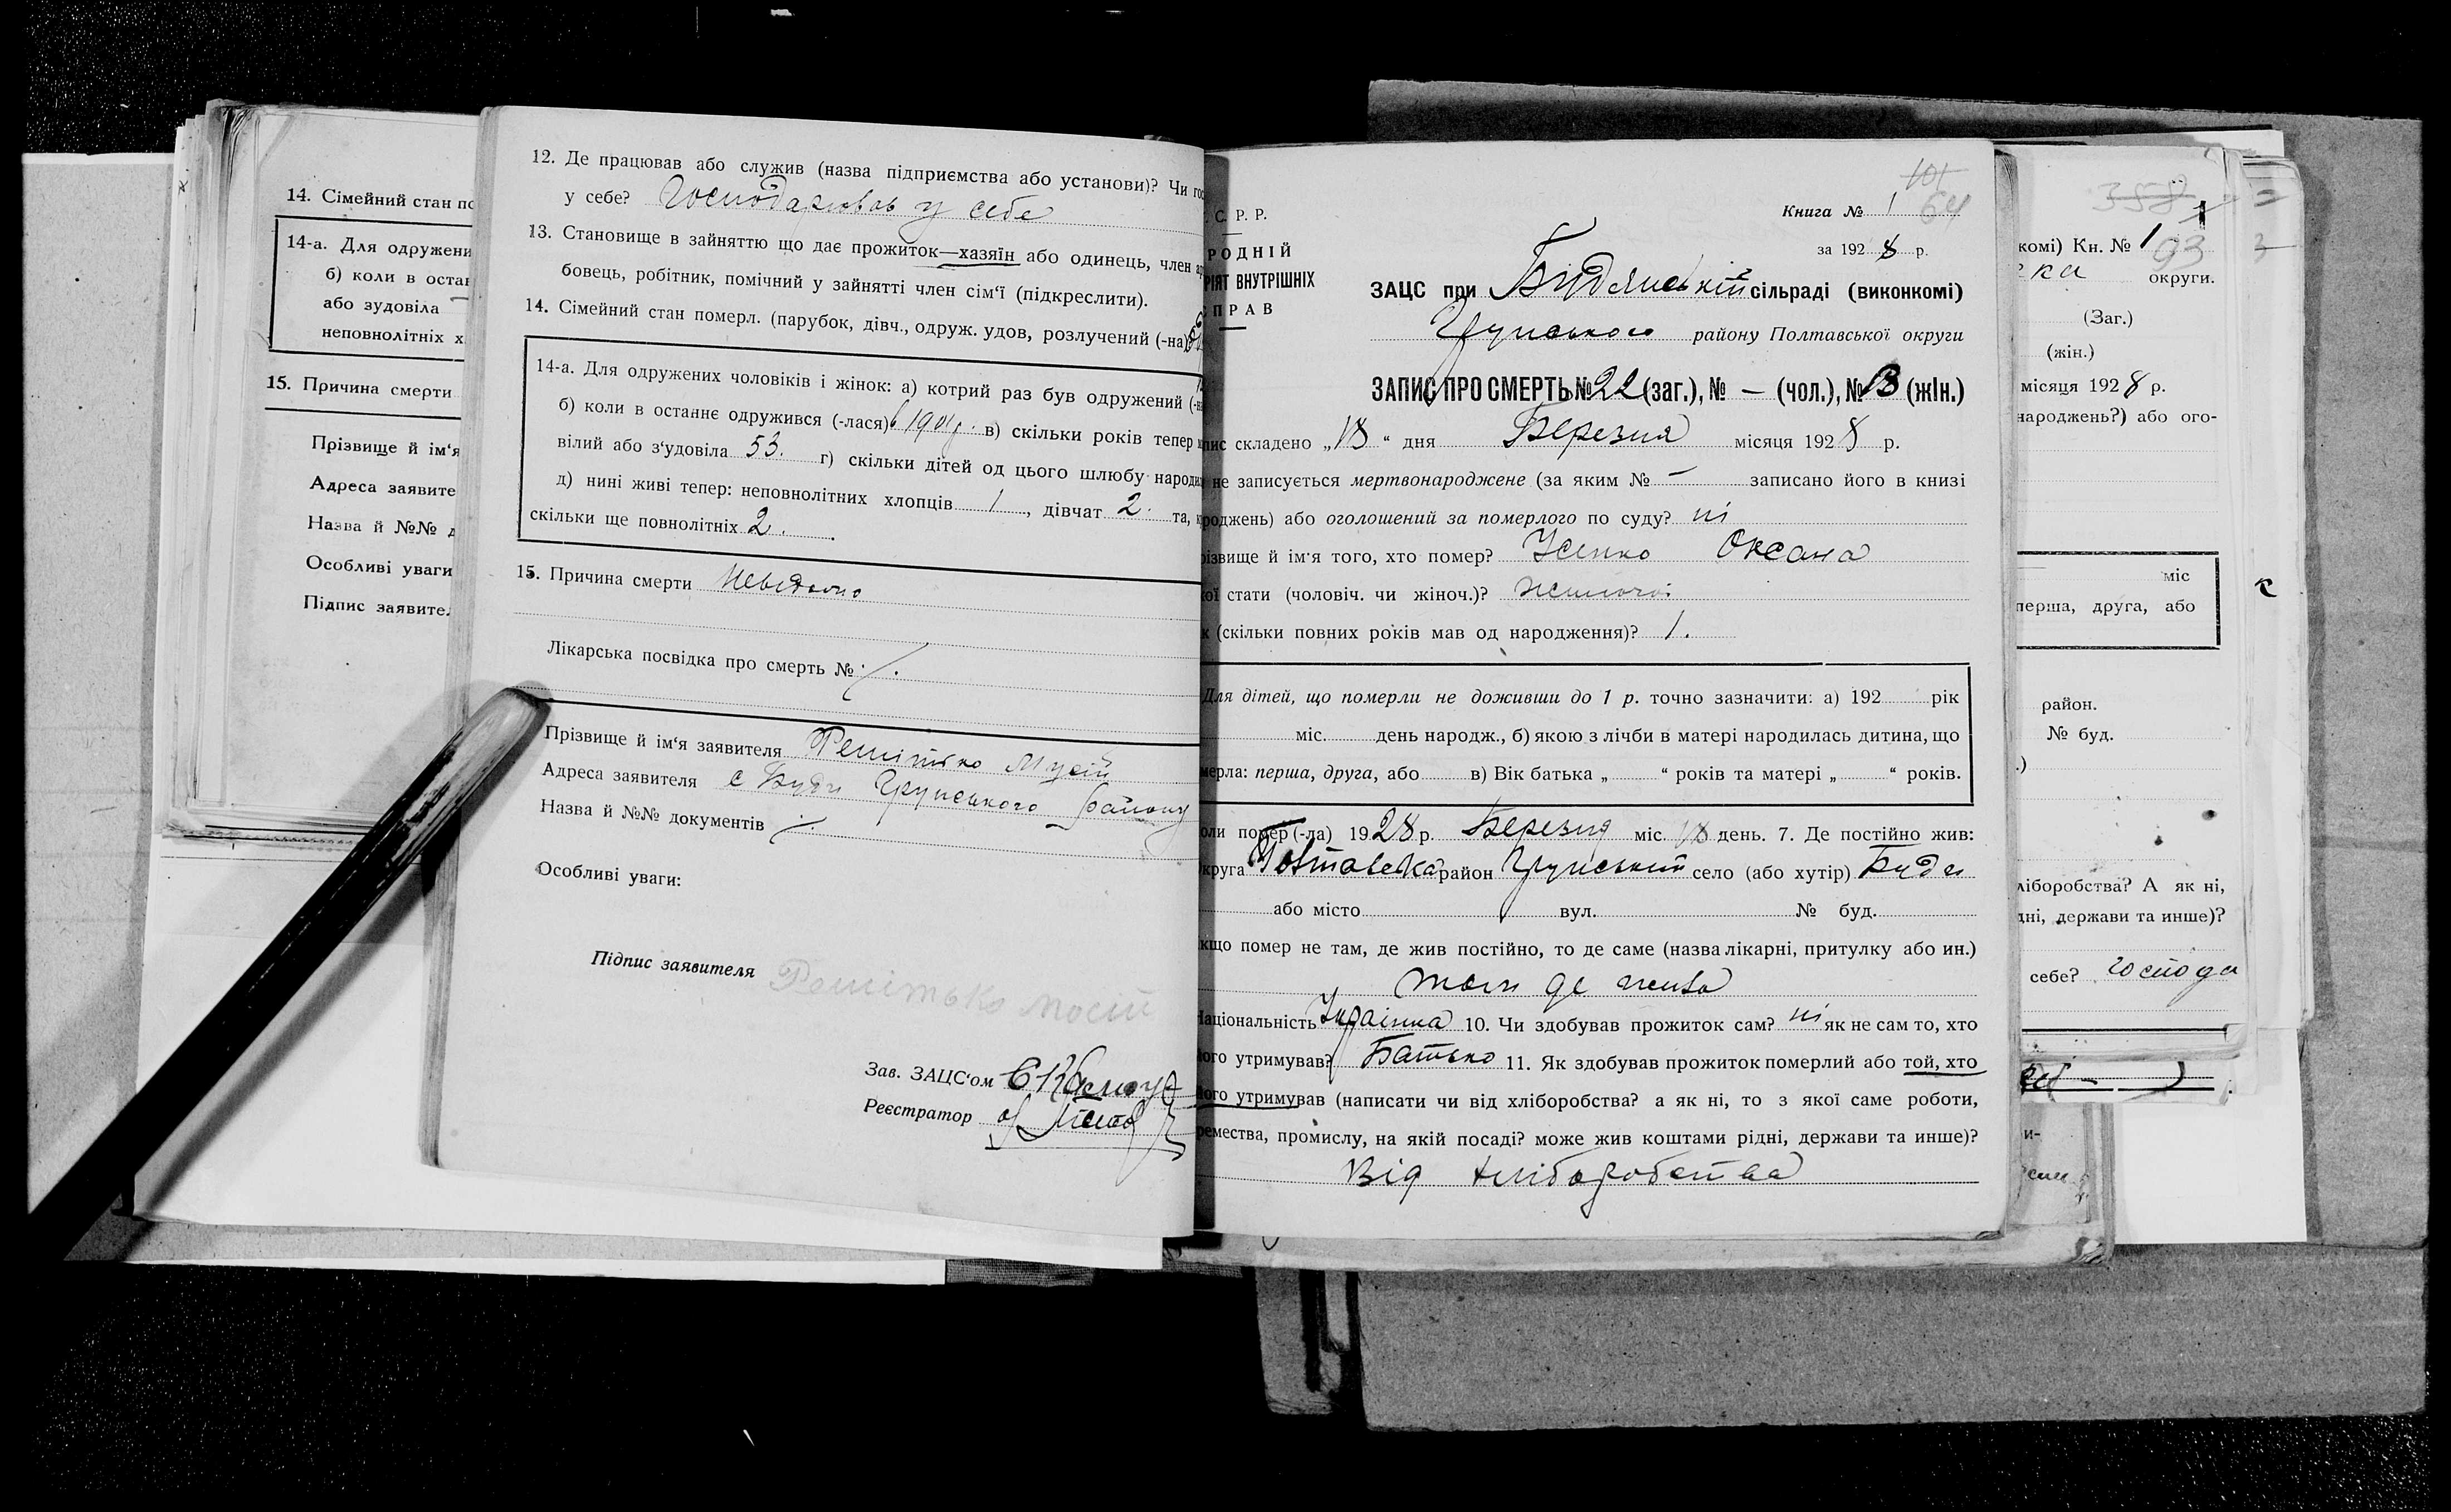 14. Сімейний стан по
14-а. Для одружени
б) коли в остан
або зудовіла
неповнолітніх х
15. Причина смерти
Прізвище й ім'я
Адреса заявите
Назва й №№ д
Особливі уваги
Підпис заявител
12. Де працював або служив (назва підприємства або установи)? Чи гос
у себе? Господарював у себе
13. Становище в зайняттю що дає прожиток—хазяїн або одинець, член ар
бовець, робітник, помічний у зайнятті член сім'ї (підкреслити).
14. Сімейний стан померл. (парубок, дівч., одруж. удов, розлучений (-на)
14-а. Для одружених чоловіків і жінок: а) котрий раз був одружений (-на
б) коли в останнє одружився (-лася) в 1901 р. в) скільки років тепер
вілий або з'удовіла 53. г) скільки дітей од цього шлюбу народи
д) нині живі тепер: неповнолітних хлопців 1, дівчат 2. та,
скільки ще повнолітніх 2.
15. Причина смерти Невідомо
Лікарська посвідка про смерть №
Прізвище й ім'я заявителя Решітько Мусій
Адреса заявителя с Буди Грунського району
Назва й №№ документів
Особливі уваги:
Підпис заявителя Решітько Мосій
Зав. ЗАЦС'ом
Реєстратор
С. Р. Р.
РОДНІЙ
РІЯТ ВНУТРІШНІХ
ПРАВ
101
64
Книга № 1
за 1928 р.
ЗАЦС при Будянській сільраді (виконкомі)
Грунського району Полтавської округи
ЗАПИС ПРО СМЕРТЬ № 22 (заг.), № — (чол.), № 13 (жін.)
пис складено „18“ дня Березня місяця 1928 р.
не записується мертвонароджене (за яким № — записано його в книзі
роджень) або оголошений за померлого по суду? ні
різвище й ім'я того, хто помер? Усенко Оксана
ої стати (чоловіч. чи жіноч.)? жиночої
к (скільки повних років мав од народження)? 1.
Для дітей, що померли не доживши до 1 р. точно зазначити: а) 192 рік
міс. день народж., б) якою з лічби в матері народилась дитина, що
мерла: перша, друга, або в) Вік батька „ “ років та матері „ “ років.
оли помер (-ла) 1928 р. Березня міс. 18 день. 7. Де постійно жив:
круга Полтавська район Грунський село (або хутір) Буди
або місто вул. № буд.
кщо помер не там, де жив постійно, то де саме (назва лікарні, притулку або ин.)
там де жила
Національність Українка 10. Чи здобував прожиток сам? ні як не сам то, хто
його утримував? Батько 11. Як здобував прожиток померлий або той, хто
його утримував (написати чи від хліборобства? а як ні, то з якої саме роботи,
ремества, промислу, на якій посаді? може жив коштами рідні, держави та инше)?
Від хліборобства
358
комі) Кн. № 1
93
ка округи.
(Заг.)
(жін.)
місяця 1928 р.
народжень?) або ого-
міс
перша, друга, або
район.
№ буд.
.)
ліборобства? А як ні,
дні, держави та инше)?
себе? господа
и-